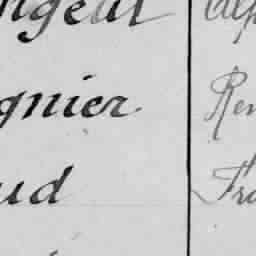 ngeat Alp
gnier Ren
ud Fra